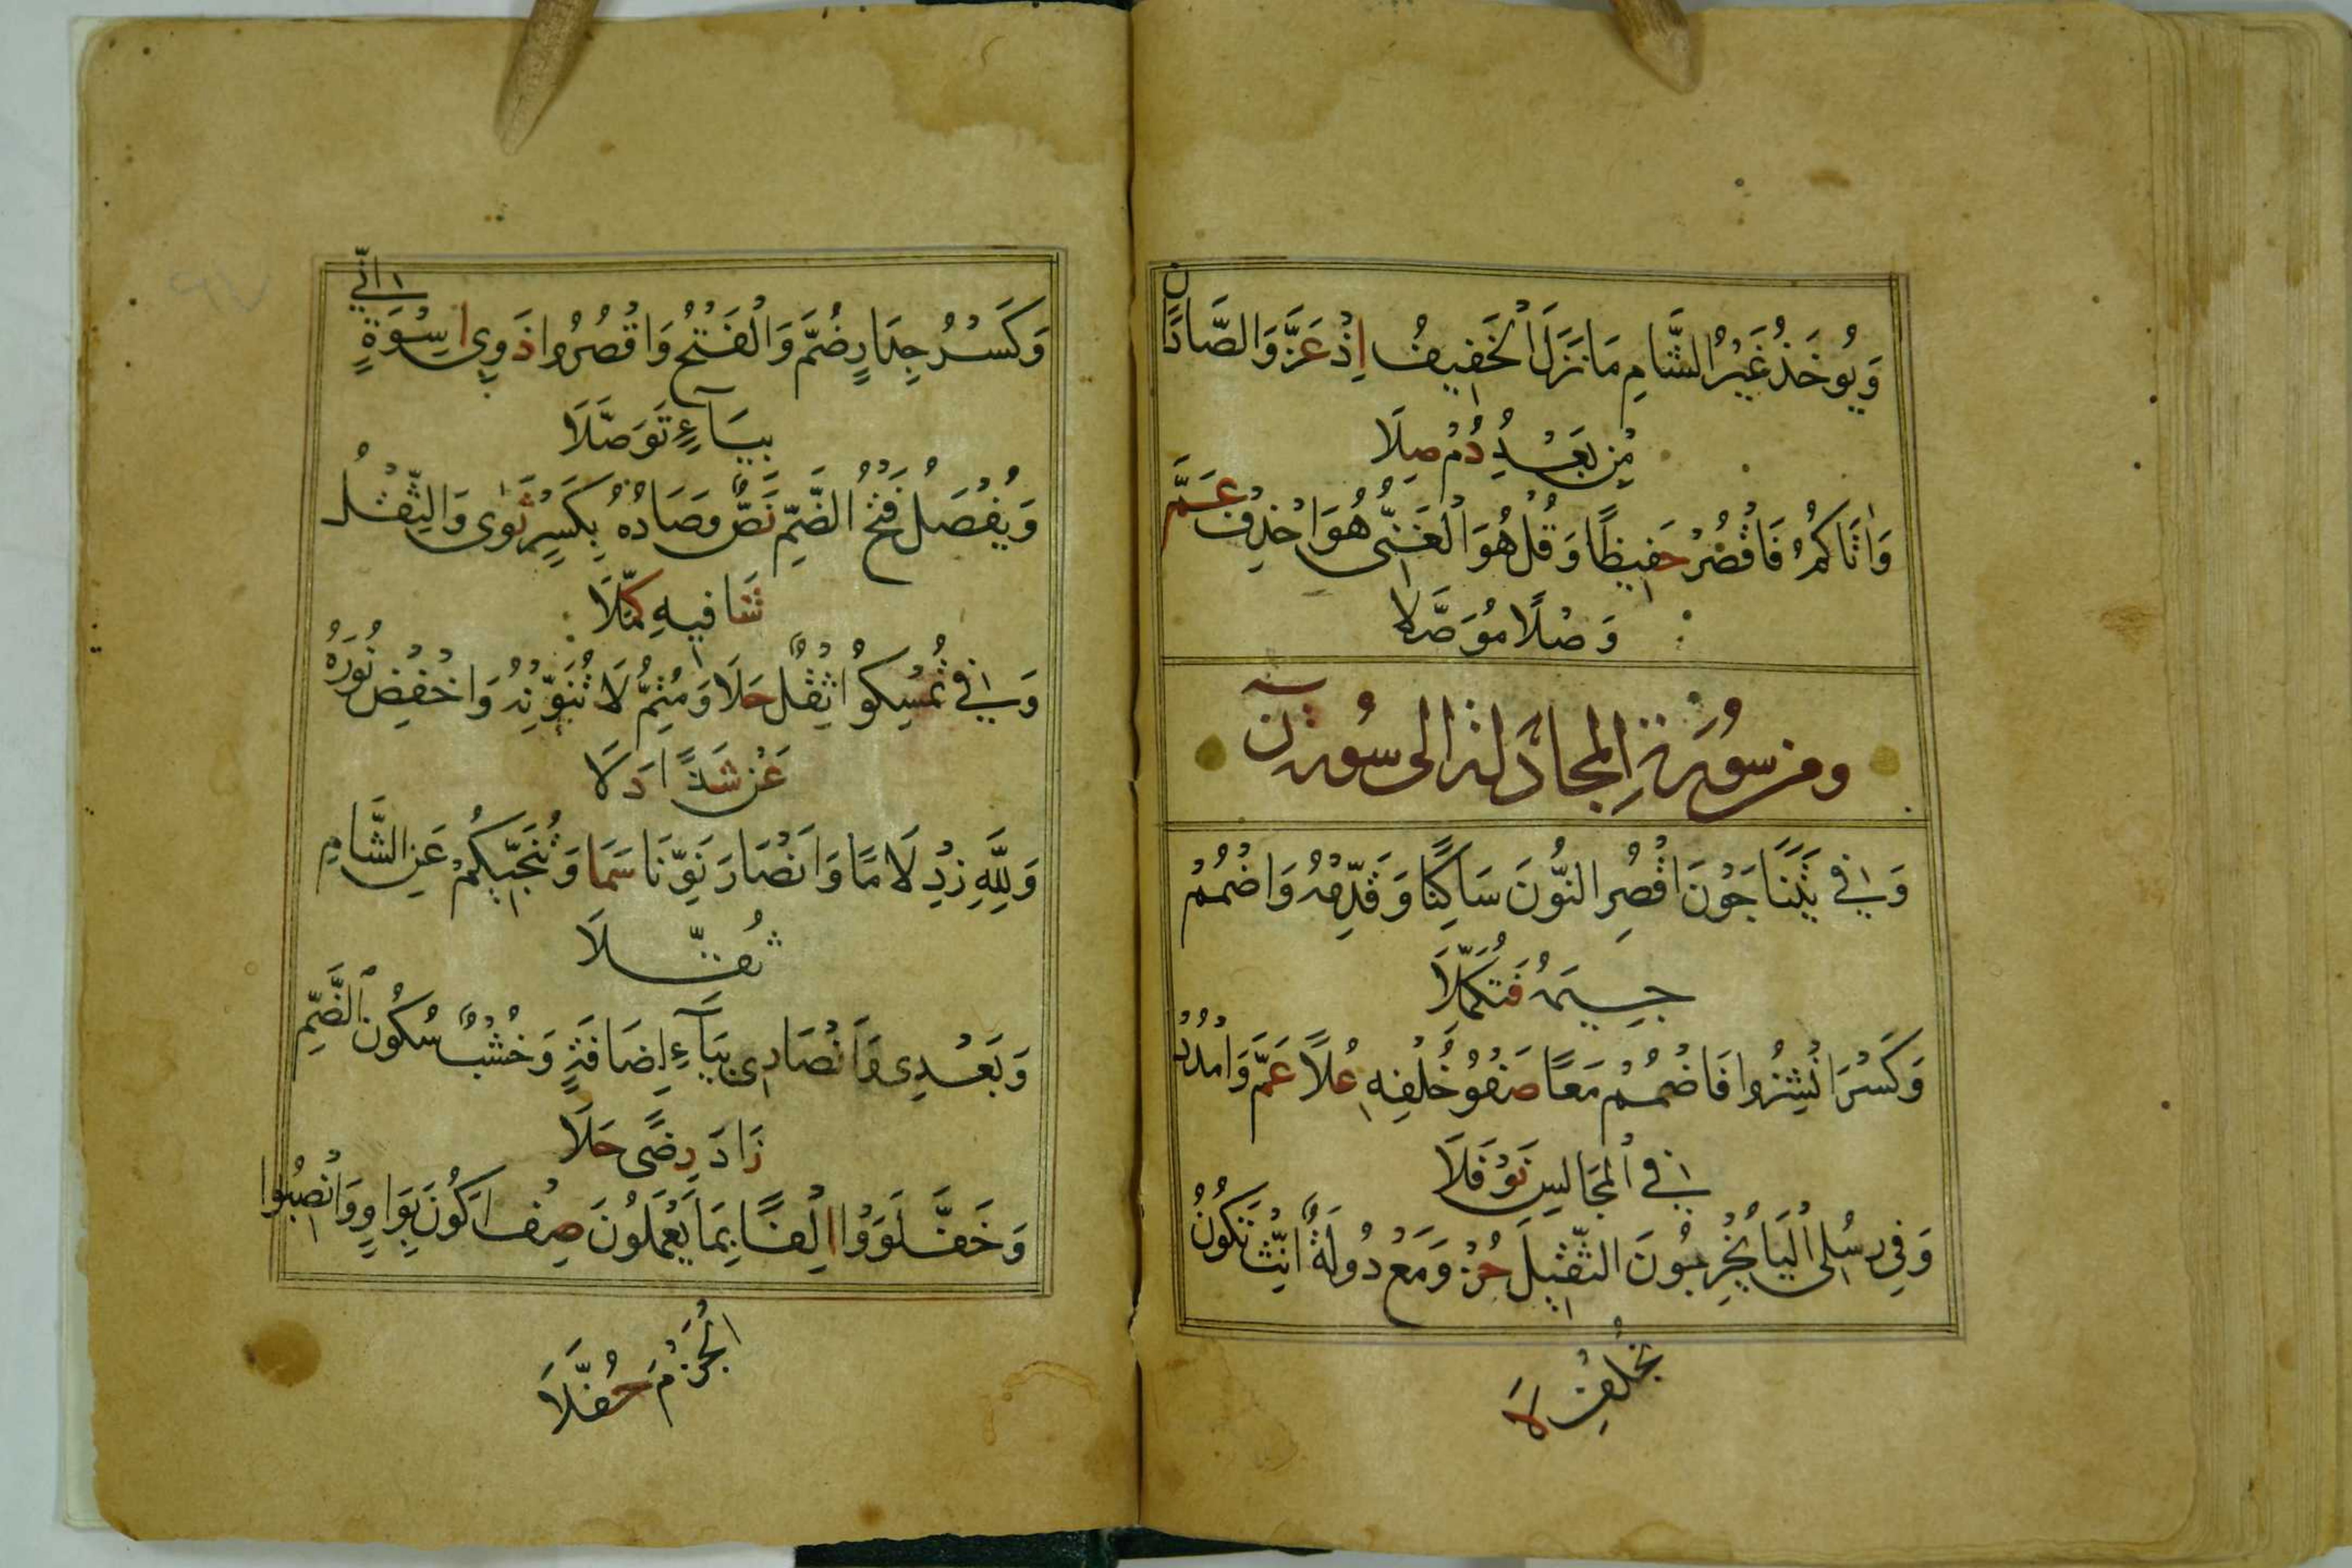 وَيُوخَذُ غَيْرُ الشَّامِ مَا نَزَلَ الْخَفِيفُ اِذْ عَزَّ وَالصَّادَانِ
مِنْ بَعْدُ دُمْ صِلَا
وَاٰتَاكُمُ فَاقْصُرْ حَفِيظًا وَقُلْ هُوَ الْغَنِيُّ هُوَ احْذِفْ عَمَّ
وَصْلًا مُوَصَّلَا
ومن سورة المجادلة الى سورة ن
وَفِي يَتَنَاجَوْنَ اقْصُرِ النُّونَ سَاكِنًا وَقَدِّمْهُ وَاضْمُمْ
جِيمَهُ فَتُكَمِّلَا
وَكَسْرَ انْشِزُوا فَاضْمُمْ مَعًا صَفْوُ خُلْفِهِ عُلًا عَمَّ وَامْدُدْ
فِي الْمَجَالِسِ نَوْفَلَا
وَفِي رُسُلِي الْيَا يُخْرِبُونَ الثَّقِيلَ حُزْ وَمَعْ دُولَةٌ اَنِّثْ تَكُونُ
بِخُلْفٍ لَا
وَكَسْرُ جِدَارٍ ضُمَّ وَالْفَتْحُ وَاقْصُرُوا ذَوِي اسْوَةٍ اِنِّي
بِيَآءٍ تَوَصَّلَا
وَيُفْصَلُ فَتْحُ الضَّمِّ نَصٌّ وَصَادُهُ بِكَسْرٍ ثَوٰى وَالثِّقْلُ
شَافِيهِ كُمِّلَا
وَفِي تُمْسِكُوا ثِقْلٌ حَلَا وَمُتِمُّ لَا تُنَوِّنْهُ وَاخْفِضْ نُورَهُ
عَنْ شَذًا دَلَا
وَلِلَّهِ زِدْ لَامًا وَاَنْصَارَ نَوِّنَا سَمَا وَتُنَجِّيكُمْ عَنِ الشَّامِ
ثُقِّلَا
وَبَعْدِي وَاَنْصَارِي بِيَآءِ اِضَافَةٍ وَخُشْبٌ سُكُونُ الضَّمِّ
زَادَ رِضًى حَلَا
وَخَفَّ لَوَوْا اِلْفًا بِمَا يَعْمَلُونَ صِفْ اَكُونَ بِوَاوٍ وَانْصِبُوا
الْجَزْمَ حُفَّلَا